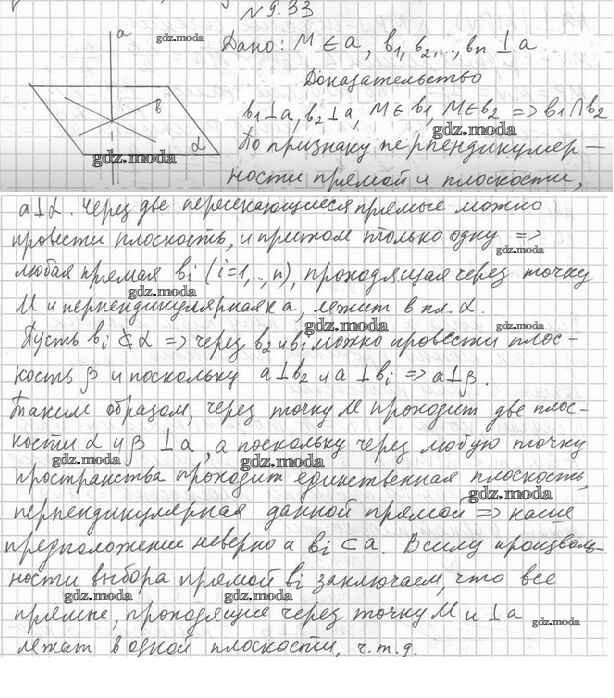 №9.33
a
Дано: M ∈ a, b₁, b₂, .., bn ⊥ a
Доказательство
b₁⊥a, b₂⊥a, M∈b₁, M∈b₂ => b₁∩b₂
b
α
По признаку перпендикуляр-
ности прямой и плоскости,
a⊥α. Через две пересекающиеся прямые можно
провести плоскость, и притом только одну =>
любая прямая bi (i=1,..,n), проходящая через точку
M и перпендикулярная к a, лежит в пл. α.
Пусть bi ⊄ α => через b₂ и bi можно провести плос-
кость β и поскольку a⊥b₂ и a⊥bi => a⊥β.
Таким образом, через точку M проходит две плос-
кости α и β ⊥a, а поскольку через любую точку
пространства проходит единственная плоскость,
перпендикулярная данной прямой => наше
предположение неверно и bi ⊂ a. В силу произволь-
ности выбора прямой bi заключаем, что все
прямые, проходящие через точку M и ⊥a
лежат в одной плоскости, ч.т.д.
gdz.moda
gdz.moda
gdz.moda
gdz.moda
gdz.moda
gdz.moda
gdz.moda
gdz.moda
gdz.moda
gdz.moda
gdz.moda
gdz.moda
gdz.moda
gdz.moda